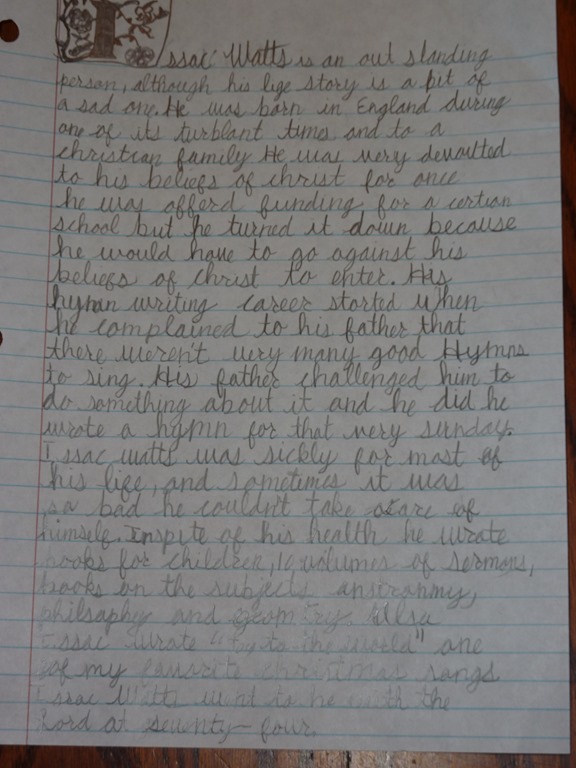 Issac Watts is an out standing
person, although his lige story is a bit of
a sad one. He was born in England during
one of its turblant times and to a
christian family. He was very devouted
to his beliegs of christ for once
he was offerd funding for a certian
school but he turned it down because
he would have to go against his
beliegs of christ to enter. His
hymn writing career started when
he complained to his father that
there weren't very many good Hymns
to sing. His father challenged him to
do something about it and he did he
wrote a hymn for that very sunday.
Issac watts was sickly for most of
his life, and sometimes it was
so bad he couldn't take care of
himself. Inspite of his health he wrote
books for children, volumes of sermons,
books on the subjects
philsaphey and geomtry. Allso
Issac wrote "to the world" one
of my favorite christmas songs
Issac Watts went to be with the
Lord at seventy-four.